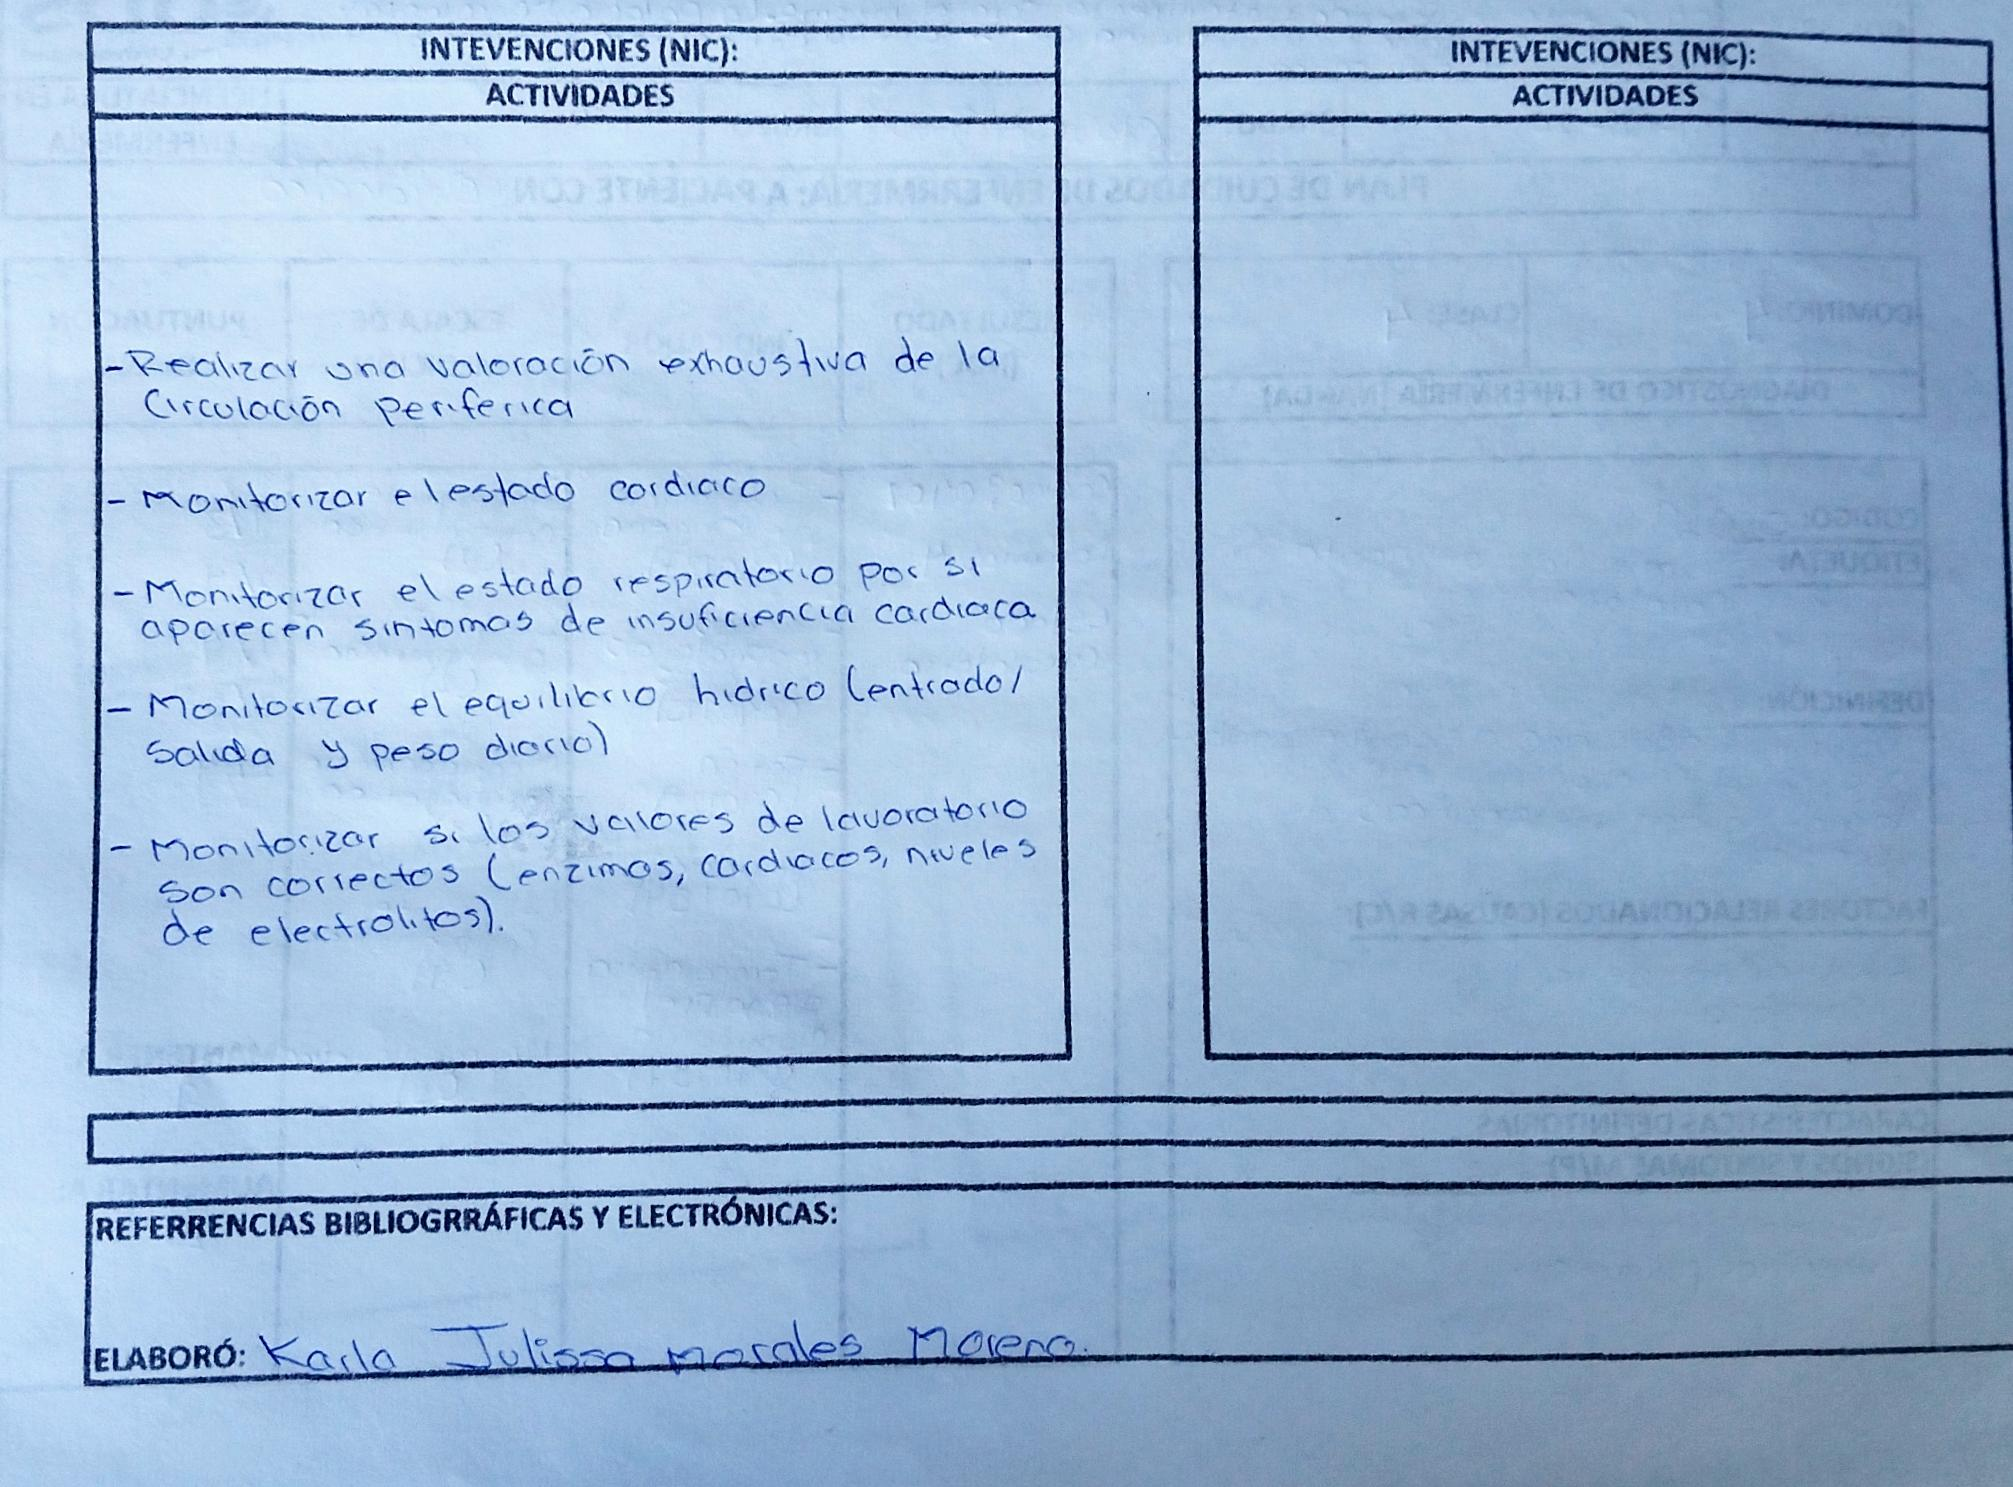 INTEVENCIONES (NIC):
ACTIVIDADES
- Realizar una valoración exhaustiva de la
Circulación periferica
- Monitorizar el estado cardiaco
- Monitorizar el estado respiratorio por si
aparecen sintomas de insuficiencia cardiaca
- Monitorizar el equilibrio hidrico (entrado/
Salida y peso diario)
- Monitorizar si los valores de lavoratorio
son correctos (enzimas, cardiacos, niveles
de electrolitos).
INTEVENCIONES (NIC):
ACTIVIDADES
REFERRENCIAS BIBLIOGRRÁFICAS Y ELECTRÓNICAS:
ELABORÓ: Karla Julissa Morales Moreno.